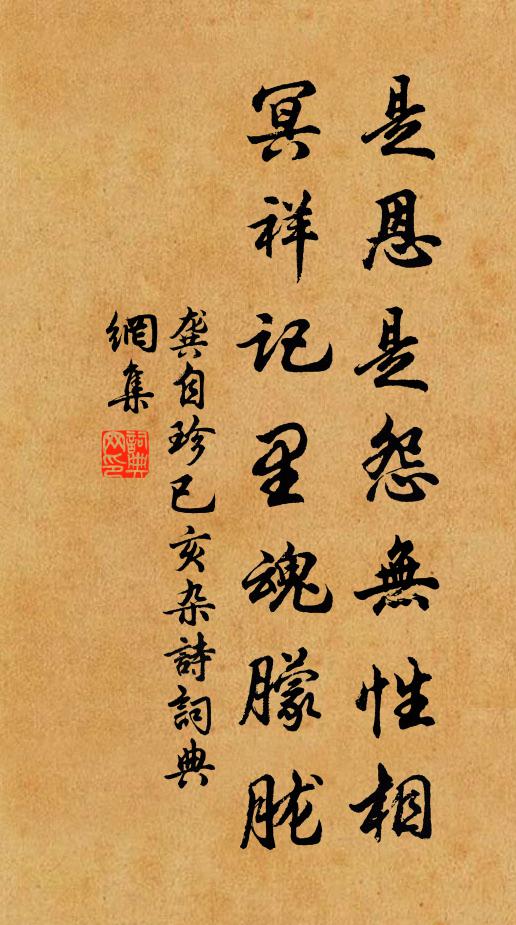 是恩是怨無性相
冥祥記里魂朦朧
龔自珍已亥杂詩詞典
網集
詞典
网印